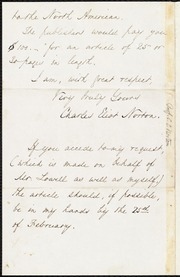 to the North American.
The publishers would pay you
$100.— for an article of 25 or
30 pages in length.
I am, with great respect,
Very truly Yours
Charles Eliot Norton.
If you accede to my request,
(which is made on behalf of
Mr. Lowell as well as myself,)
the article should, if possible,
be in my hands by the 20th
of February.